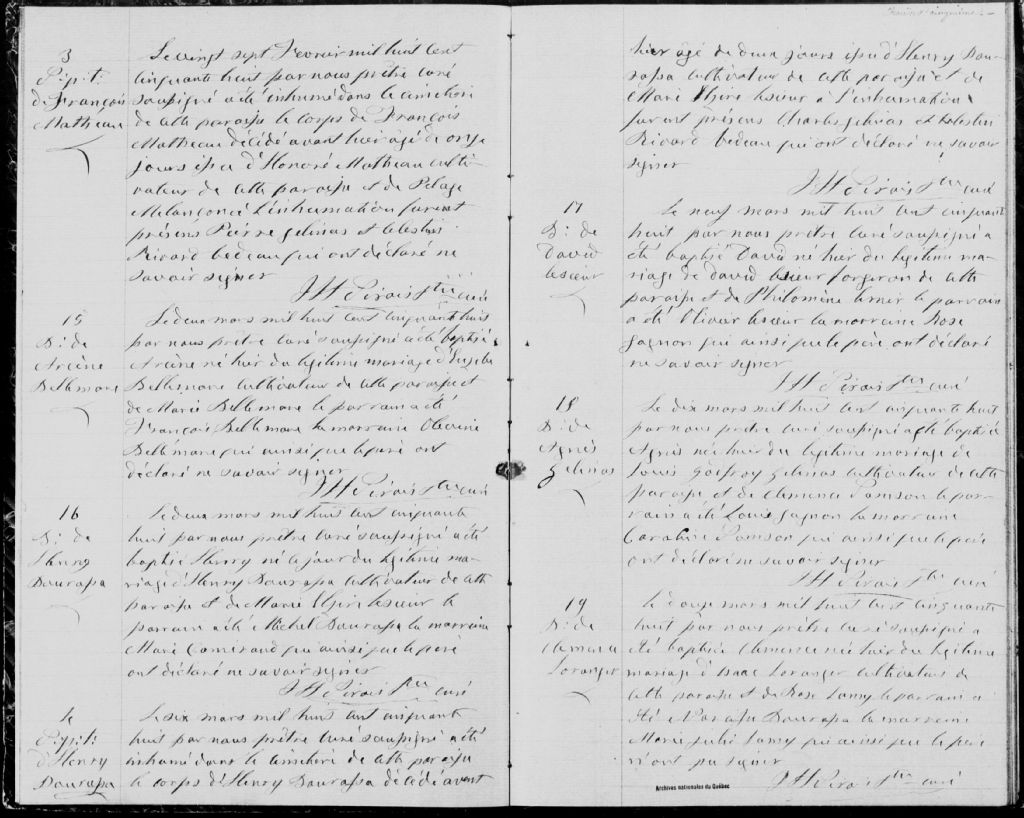 3
S: pt:
de François
Matheau
Le vingt sept Fevrier mil huit cent
cinquante huit par nous prêtre curé
soussigné a été inhumé dans le cimetière
de cette paroisse le corps de François
Matheau décédé avant hier agé de onze
jours issu d'Honoré Matheau culti-
vateur de cette paroisse et de Pelage
Melançon à l'inhumation furent
présens Pierre Gelinas et Celestin
Rivard bedeau qui ont déclaré ne
savoir signer
Ptre curé
15
B: de
Arcène
Bellemare
Le deux mars mil huit cent cinquante huit
par nous prêtre curé soussigné a été baptisé
Arcène né hier du légitime mariage d'Eusèbe
Bellemare cultivateur de cette paroisse et
de Marie Bellemare le parrain a été
François Bellemare la marraine
Bellemare qui ainsi que le père ont
déclaré ne savoir signer
Ptre curé
16
B: de
Henry
Bourassa
Le deux mars mil huit cent cinquante
huit par nous prêtre curé soussigné a été
baptisé Henry né ce jour du légitime ma-
riage d'Henry Bourassa cultivateur de cette
paroisse et de Marie Lesieur le
parrain a été Michel Bourassa la marraine
Marie qui ainsi que le père
ont déclaré ne savoir signer
Ptre curé
4
S: pt:
d'Henry
Bourassa
Le six mars mil huit cent cinquante
huit par nous prêtre curé soussigné a été
inhumé dans le cimetière de cette paroisse
le corps d'Henry Bourassa décédé avant
hier agé de deux jours issu d'Henry Bou-
rassa cultivateur de cette paroisse et de
Marie Lesieur à l'inhumation
furent présens Charles Gelinas et Celestin
Rivard bedeau qui ont déclaré ne savoir
signer
Ptre curé
17
B: de
David
Lesieur
Le neuf mars mil huit cent cinquante
huit par nous prêtre curé soussigné a
été baptisé David né hier du légitime ma-
riage de David Lesieur forgeron de cette
paroisse et de Philomène le parrain
a été Olivier Lesieur la marraine Rose
Gagnon qui ainsi que le père ont déclaré
ne savoir signer
Ptre curé
18
B: de
Agnès
Gelinas
Le dix mars mil huit cent cinquante huit
par nous prêtre curé soussigné a été baptisé
Agnès née hier du légitime mariage de
Louis Godfroy Gelinas cultivateur de cette
paroisse et de Clemence Samson le par-
rain a été Louis Gagnon la marraine
Caroline Samson qui ainsi que le père
ont déclaré ne savoir signer
Ptre curé
19
B: de
Clemence
Loranger
Le douze mars mil huit cent cinquante
huit par nous prêtre curé soussigné a
été baptisé Clemence née hier du légitime
mariage d'Isaac Loranger cultivateur de
cette paroisse et de Rose Lamy le parrain a
été Bourassa la marraine
Marie Julie Lamy qui ainsi que le père
n'ont pu signer
Ptre curé
Archives nationales du Québec